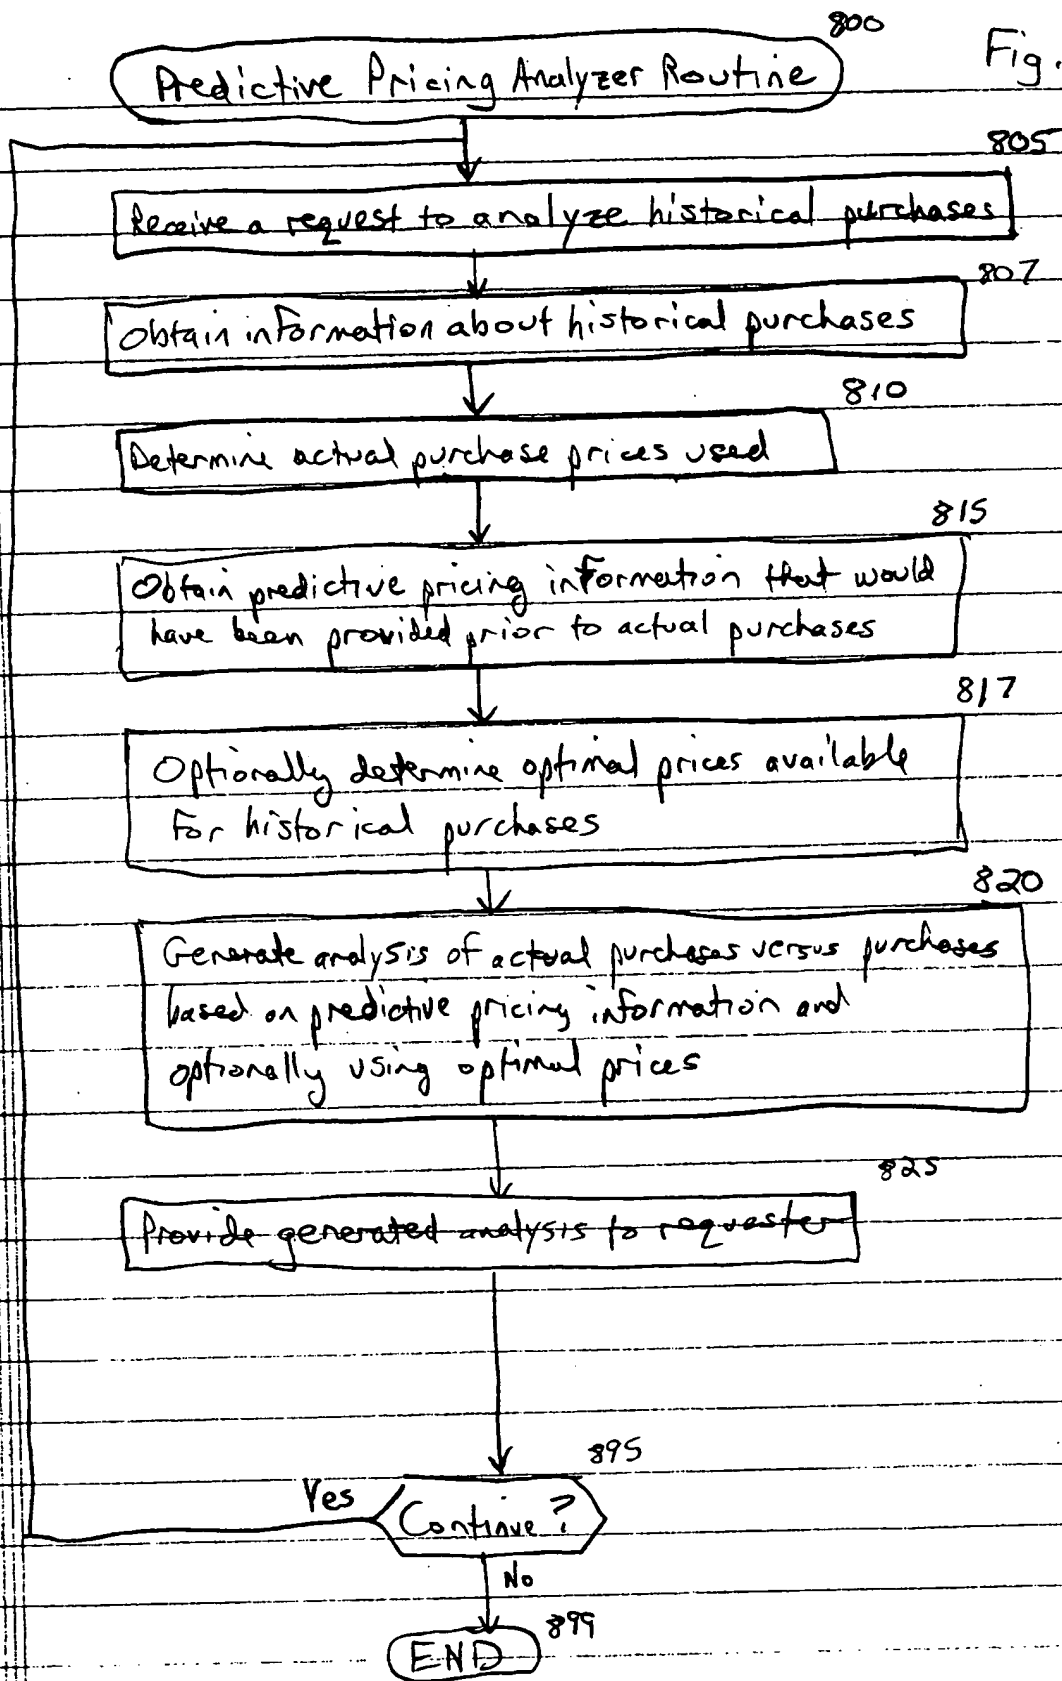 800
Fig.
Predictive Pricing Analyzer Routine
805
Receive a request to analyze historical purchases
807
Obtain information about historical purchases
810
Determine actual purchase prices used
815
Obtain predictive pricing information that would
have been provided prior to actual purchases
817
Optionally determine optimal prices available
for historical purchases
820
Generate analysis of actual purchases versus purchases
based on predictive pricing information and
optionally using optimal prices
825
Provide generated analysis to requester
895
Yes
Continue?
No
899
END